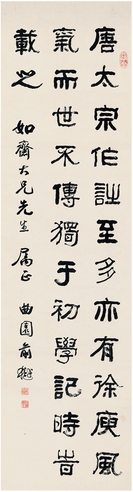 唐太宗作詔至多亦有徐庾風
氣而世不傳獨于初學記時時
載之
如齋大兄先生屬正
曲園俞樾